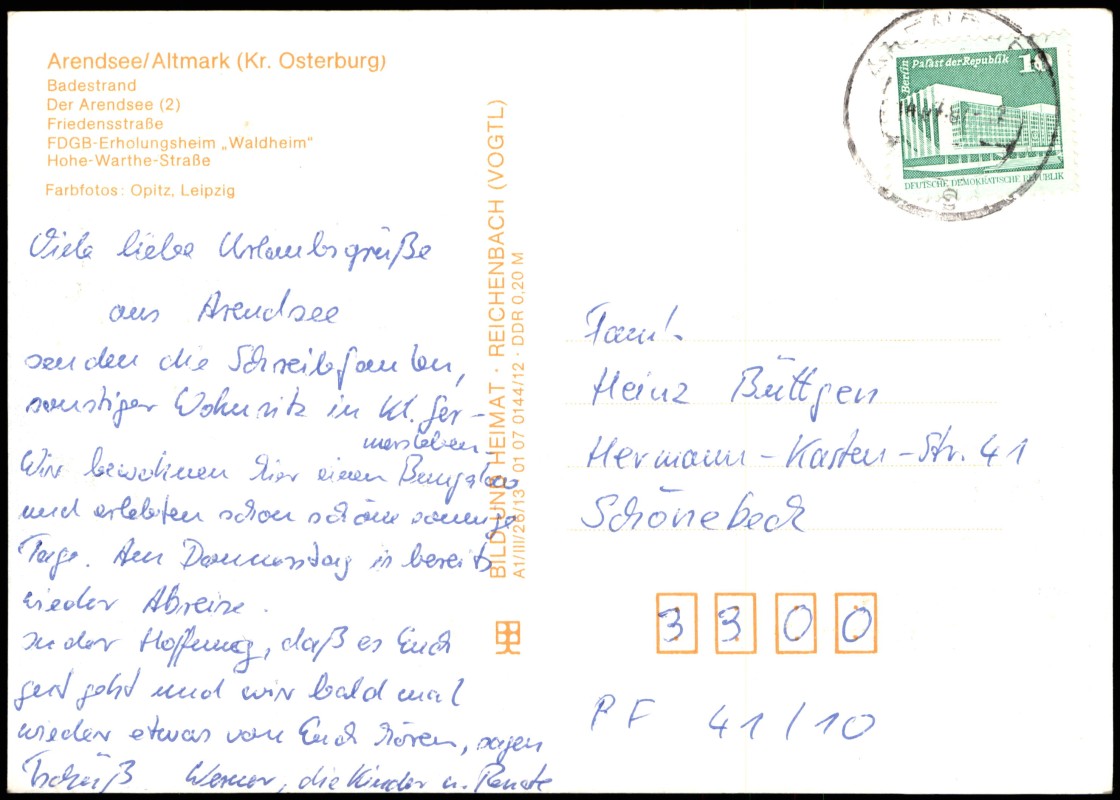 Arendsee/Altmark (Kr. Osterburg)
Badestrand
Der Arendsee (2)
Friedensstraße
FDGB-Erholungsheim „Waldheim“
Hohe-Warthe-Straße
Farbfotos: Opitz, Leipzig
Viele liebe Urlaubsgrüße
aus Arendsee
senden die Schreibfaulen,
sonstiger Wohnsitz in Kl. Ger-
mersleben.
Wir bewohnen hier einen Bungalow
und erlebten schon schöne sonnige
Tage. Am Donnerstag is bereits
wieder Abreise.
In der Hoffnung, daß es Euch
gut geht und wir bald mal
wieder etwas von Euch hören, sagen
Tschüß Werner, die Kinder u. Renate
BILD UND HEIMAT · REICHENBACH (VOGTL)
A1/III/26/13 01 07 0144/12 · DDR 0,20 M
Berlin Palast der Republik 10
DEUTSCHE DEMOKRATISCHE REPUBLIK
Fam.
Heinz Büttgen
Hermann-Kasten-Str. 41
Schönebeck
3300
PF 41/10